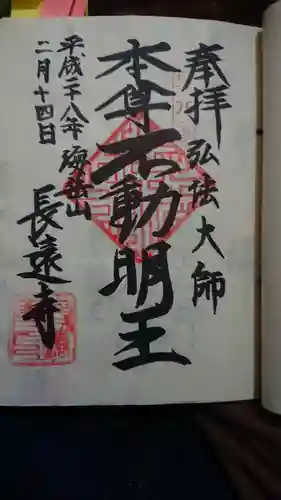 奉拝 弘法大師
本尊不動明王
平成二十八年 海岳山
二月十四日
長遠寺